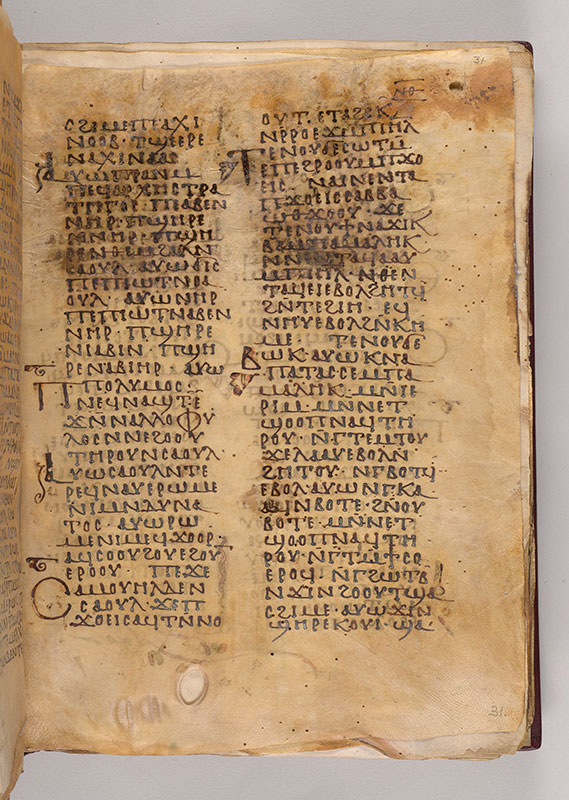 31
ⲛⲑ
ⲥϩⲓⲙⲉⲡⲉⲁⲭⲓ
ⲛⲟⲟⲃ· ⲧϣⲉⲉⲣⲉ
ⲛⲁⲭⲓⲛⲁⲁⲥ
ⲁⲩⲱⲡⲣⲁⲛⲙ
ⲡⲉϥⲁⲣⲭⲏⲥⲧⲣⲁ
ⲧⲏⲅⲟⲥ· ⲡⲉⲁⲃⲉⲛ
ⲛⲏⲣ· ⲡϣⲏⲣⲉ
ⲛⲛⲏⲣ· ⲡϣⲏ
ⲥⲁⲟⲩⲗ· ⲁⲩⲱⲕⲓⲥ
ⲡⲉⲡⲓⲱⲧⲛⲥⲁ
ⲟⲩⲗ· ⲁⲩⲱⲛⲏⲣ
ⲡⲉⲡⲓⲱⲧⲛⲁⲃⲉⲛ
ⲛⲏⲣ· ⲡϣⲏⲣⲉ
ⲛⲓⲁⲃⲓⲛ· ⲡϣⲏ
ⲣⲉⲛⲁⲃⲓⲏⲣ· ⲁⲩⲱ
ⲡⲡⲟⲗⲩⲙⲟⲥ·
ⲛⲉϥⲛⲁϣⲧⲉ
ϫⲛⲛⲁⲗⲗⲟⲫⲩ
ⲗⲟⲥⲛⲛⲉϩⲟⲟⲩ
ⲧⲏⲣⲟⲩⲛⲥⲁⲟⲩⲗ·
ⲁⲩⲱⲥⲁⲟⲩⲗⲛⲧⲉ
ⲣⲉϥⲛⲁⲩⲉⲣⲱⲙⲉ
ⲛⲓⲙⲛⲇⲩⲛⲁ
ⲧⲟⲥ· ⲁⲩⲱⲣⲱ
ⲙⲉⲛⲓⲙⲉϥϫⲟⲟⲣ·
ⲁϥⲥⲟⲟⲩϩⲟⲩⲉϩⲟⲩ
ⲉⲣⲟⲟⲩ· ⲡⲉϫⲉ
ⲥⲁⲙⲟⲩⲏⲗⲗⲉⲛ
ⲥⲁⲟⲩⲗ· ϫⲉⲡ
ϫⲟⲉⲓⲥⲁϥⲧⲛⲛⲟ
ⲟⲩⲧ· ⲉⲧⲁϩⲥⲕ
ⲛⲣⲣⲟⲉϫⲙⲡⲓⲏⲗ
ⲧⲉⲛⲟⲩⲥⲱⲧⲙ
ⲉⲡⲉϩⲣⲟⲟⲩⲙⲡϫⲟ
ⲉⲓⲥ· ⲛⲁⲓⲛⲉⲛⲧⲁ
ⲡϫⲟⲉⲓⲥⲥⲁⲃⲃⲁ
ⲱⲑϫⲟⲟⲩ· ϫⲉ
ⲧⲉⲛⲟⲩϯⲛⲁϫⲓⲕ
ⲃⲁ
ⲙⲡⲓⲏⲗ· ⲛⲑⲉⲛ
ⲧⲁϥⲉⲓⲉⲃⲟⲗϩⲏⲧϥ
ϩⲛⲧⲉϩⲓⲏ· ⲉϥ
ⲛⲏⲩⲉⲃⲟⲗϩⲛⲕⲏ
ⲙⲉ· ⲧⲉⲛⲟⲩϭⲉ
ⲃⲱⲕ·ⲁⲩⲱⲕⲛⲁ
ⲡⲁⲧⲁⲥⲥⲉⲙⲡⲁ
ⲙⲁⲗⲏⲕ· ⲙⲛⲓⲉ
ⲣⲓⲙ· ⲙⲛⲛⲉⲧ
ϣⲟⲟⲡⲛⲁϥⲧⲏ
ⲣⲟⲩ· ⲛⲅⲧⲉⲙⲧⲟⲩ
ϫⲉⲗⲁⲁⲩⲉⲃⲟⲗⲛ
ϩⲏⲧⲟⲩ· ⲛⲅⲃⲟⲧϥ
ⲉⲃⲟⲗ·ⲁⲩⲱⲛⲅⲕⲁ
ⲁϥⲛⲃⲟⲧⲉ· ϩⲛⲟⲩ
ⲃⲟⲧⲉ· ⲙⲛⲛⲉⲧ
ϣⲟⲟⲡⲛⲁϥⲧⲏ
ⲣⲟⲩ·ⲛⲅⲧⲙϯⲥⲟ
ⲉⲣⲟϥ· ⲛⲅϩⲱⲧⲃ
ⲛϫⲓⲛϩⲟⲟⲩⲧϣⲁ
ⲥϩⲓⲙⲉ· ⲁⲩⲱϫⲓⲛ
ϣⲏⲣⲉⲕⲟⲩⲓ· ϣⲁ
31.